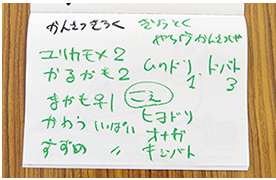 かんさつきろく
きろく
やちょうかんさつ
ユリカモメ2
かるがも2
まがも♀1
かわう いっぱい
すずめ 〃
ドバト3
こえ
ヒヨドリ
オナガ
キジバト